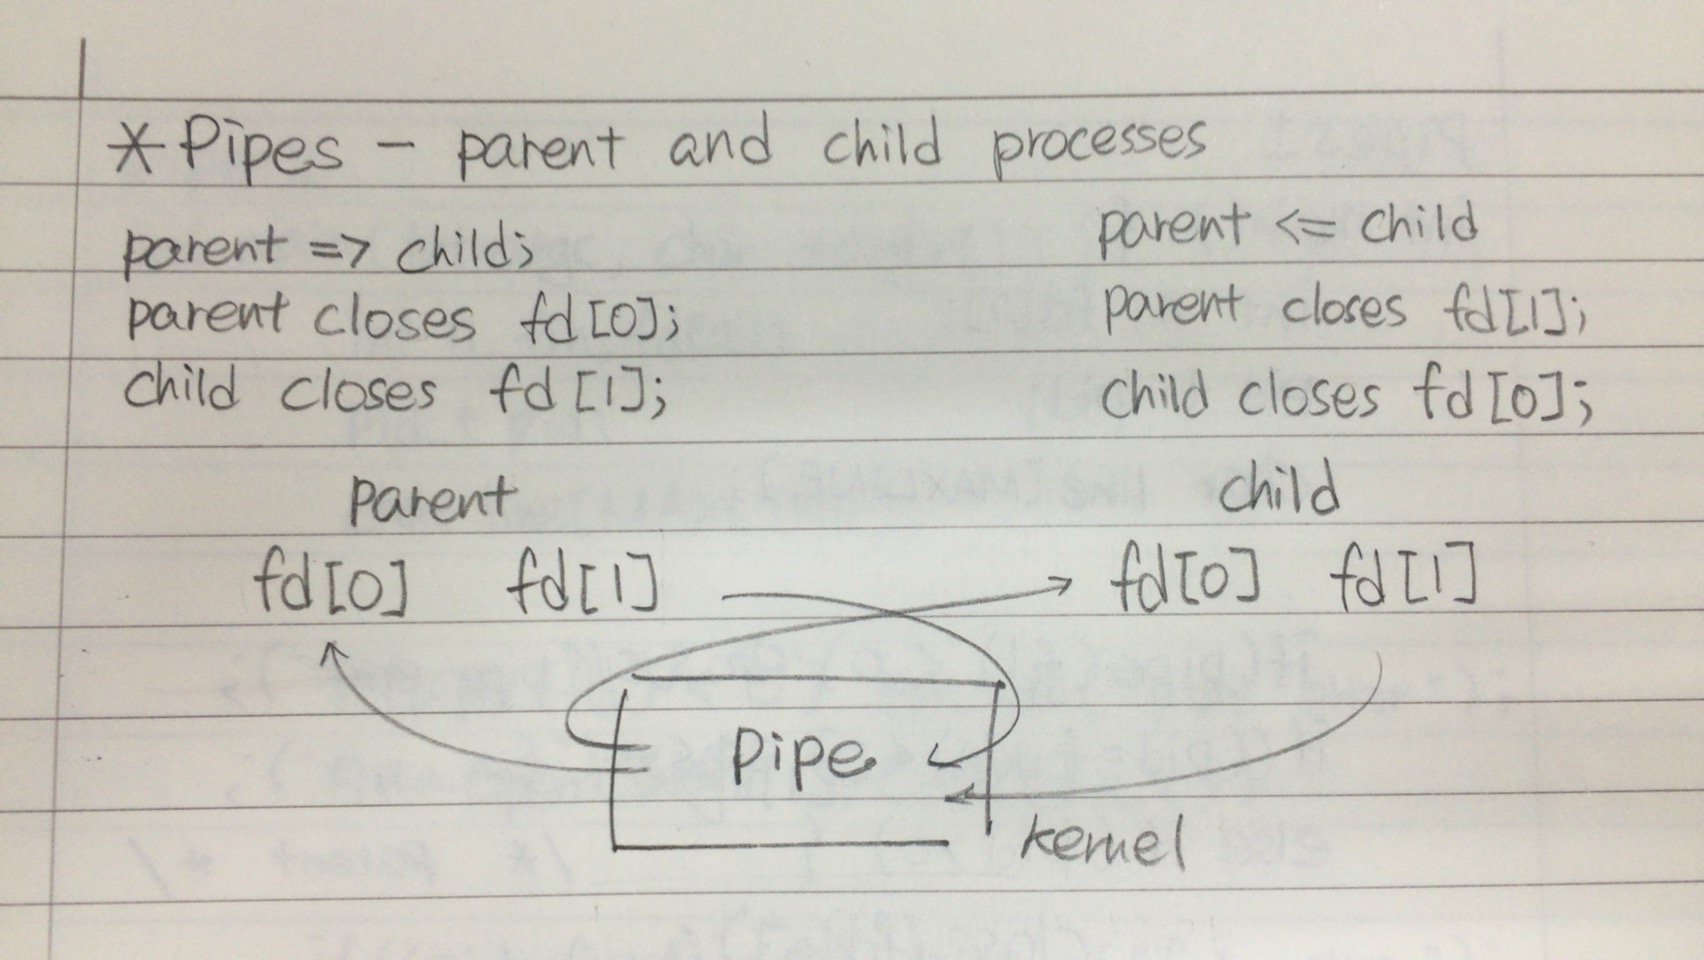 * Pipes - parent and child processes
parent => child;
parent closes fd[0];
child closes fd[1];
parent <= child
parent closes fd[1];
child closes fd[0];
parent
child
fd[0] fd[1]
fd[0] fd[1]
pipe
kernel